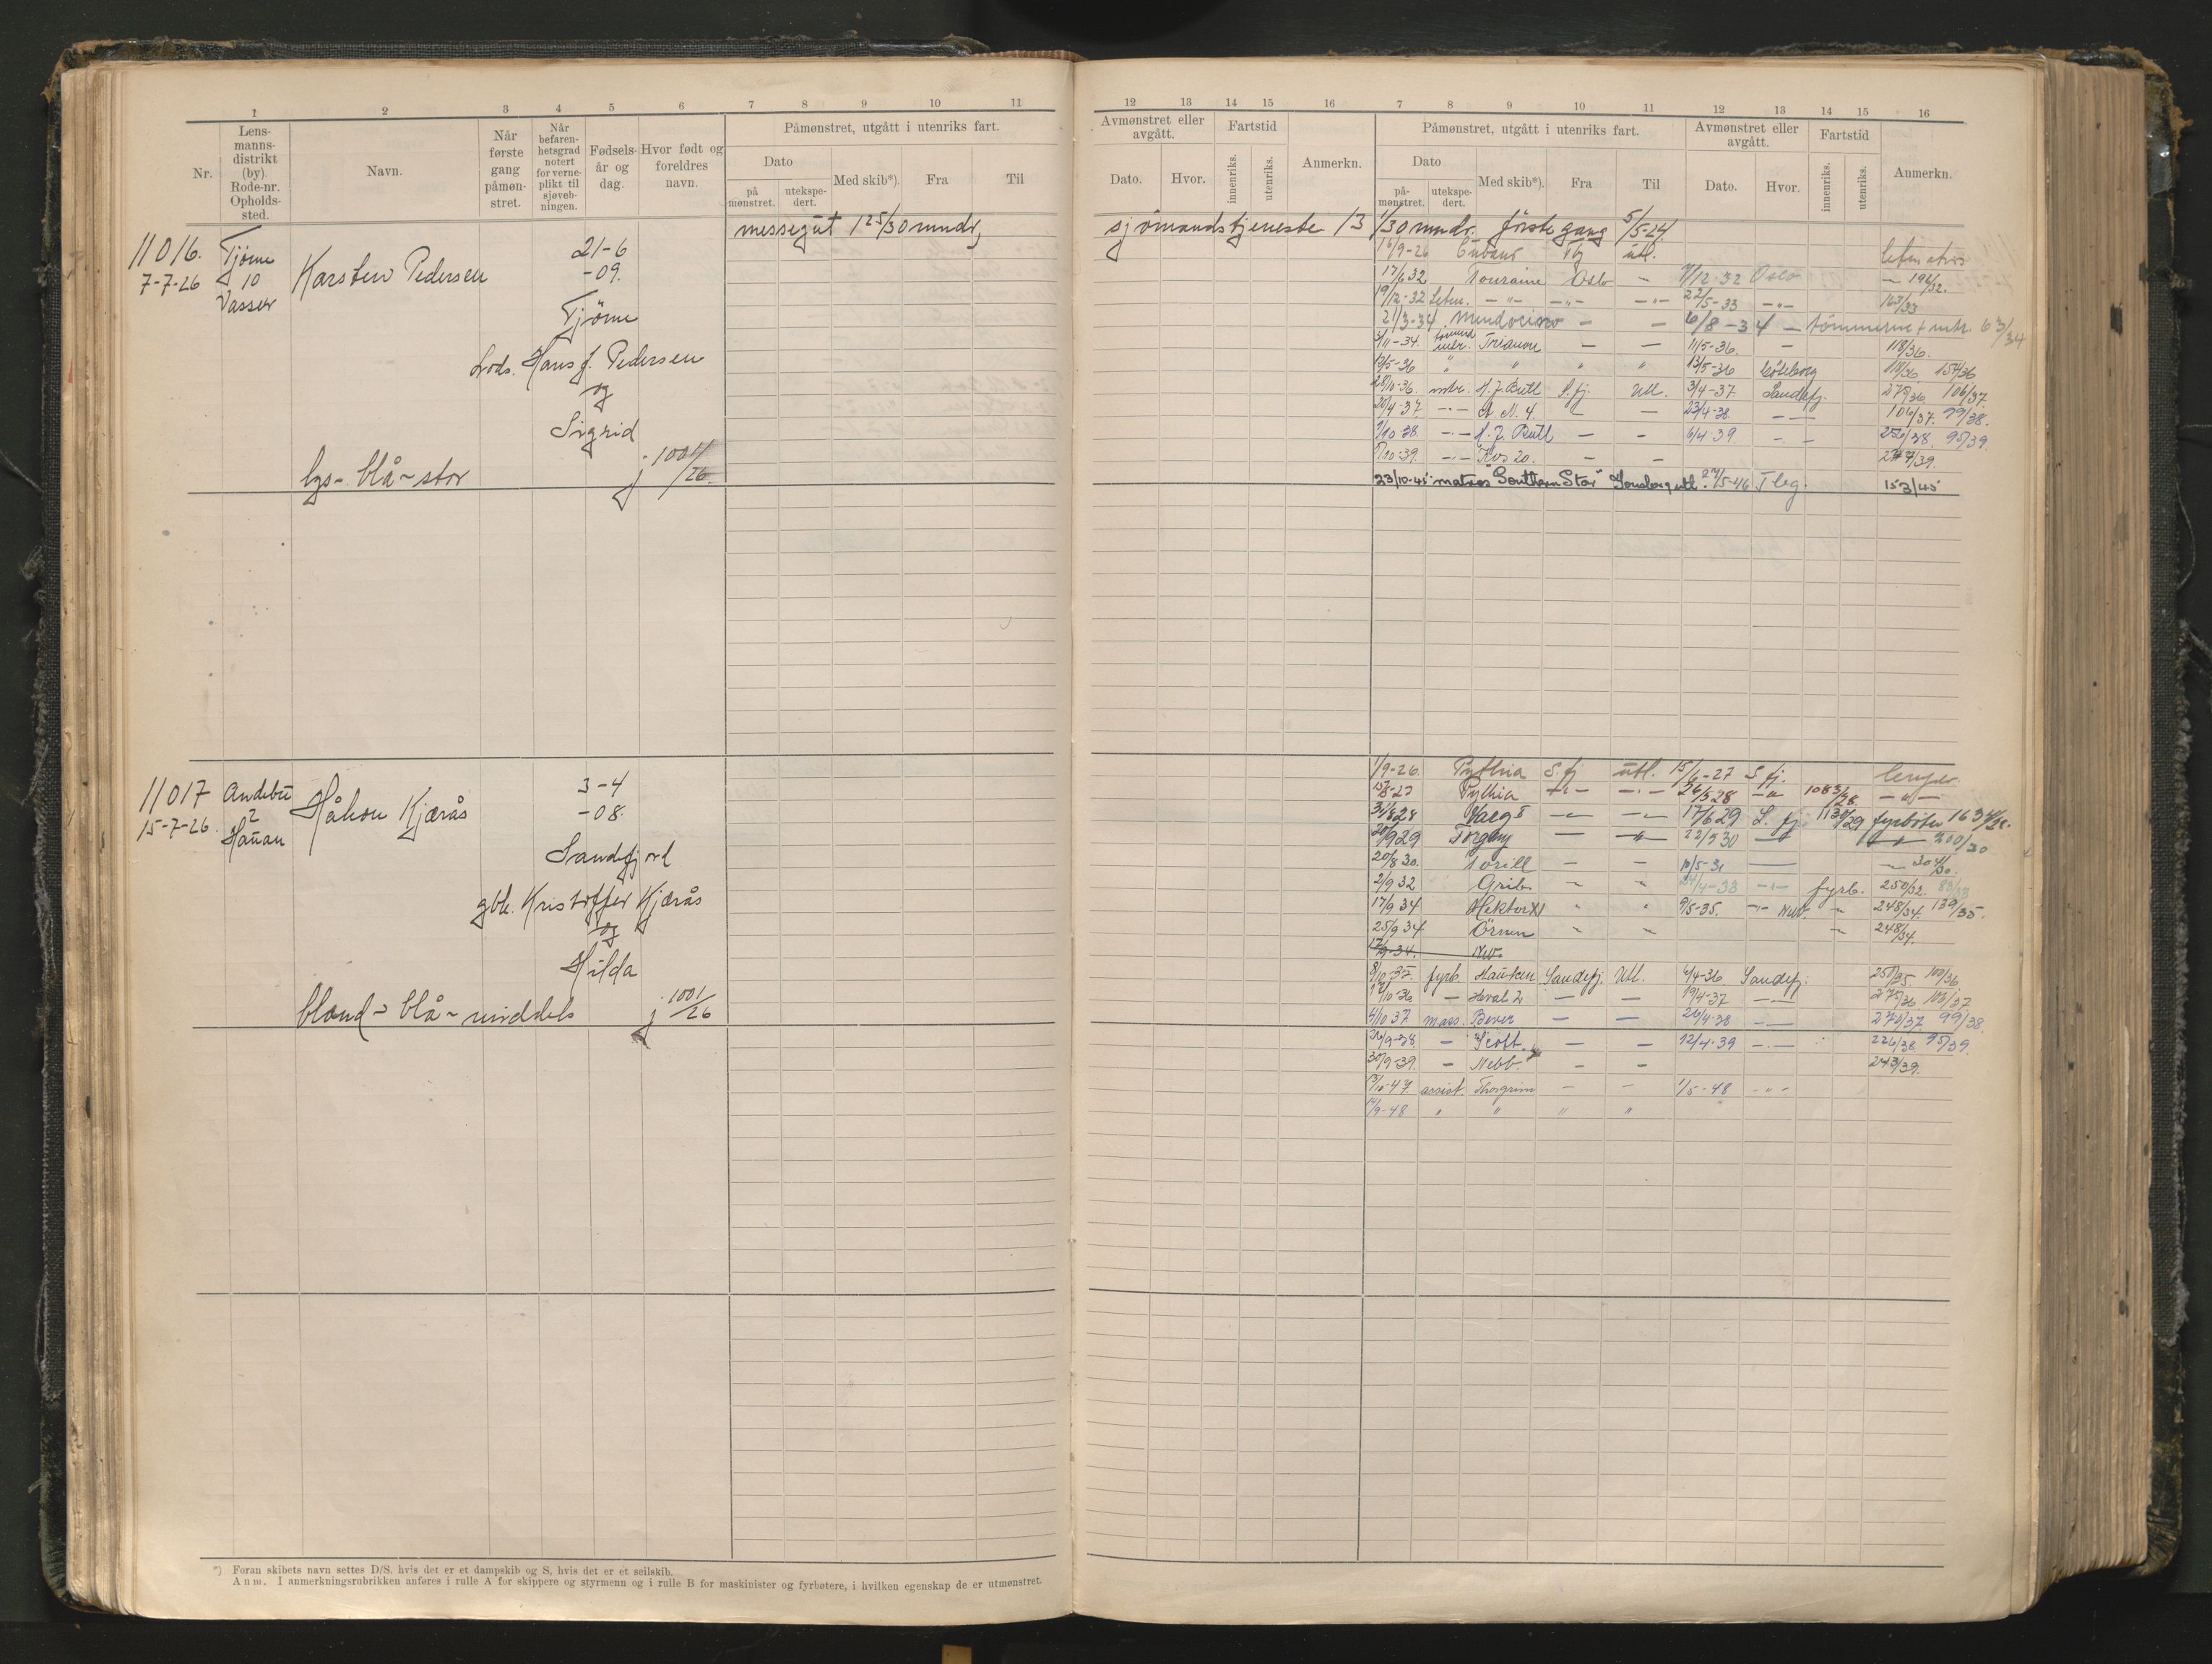 1 2 3 4 5 6 7 8 9 10 11
Nr.
Lens-
manns-
distrikt
(by).
Rode-nr.
Opholds-
sted.
Navn.
Når
første
gang
påmøn-
stret.
Når
befaren-
hetsgrad
notert
for verne-
plikt til
sjøveb-
ningen.
Fødsels-
år og
dag.
Hvor født og
foreldres
navn.
Påmønstret, utgått i utenriks fart.
Dato
på
mønstret.
utekspe-
dert.
Med skib*).
Fra
Til
11016.
7-7-26
Tjøme
10
Vasser
Karsten Pedersen
21-6
-09.
Tjöme
Lods. Hans J. Pedersen
og
Sigrid
lys- blå - stor
j 1001/26.
messegut 1 25/30 mndr,
11017
15-7-26.
Andebu
2
Hauan
Håkon Kjærås
3-4
-08.
Sandefjord
gbr. Kristoffer Kjærås
og
Hilda
blond - blå - middels
j. 1001/26
*) Foran skibets navn settes D/S, hvis det er et dampskib og S, hvis det er et seilskib.
Anm. I anmerkningsrubrikken anføres i rulle A for skippere og styrmenn og i rulle B for maskinister og fyrbøtere, i hvilken egenskap de er utmønstret.
12 13 14 15 16 7 8 9 10 11 12 13 14 15 16
Avmønstret eller
avgått.
Dato.
Hvor.
Fartstid
innenriks.
utenriks.
Anmerkn.
Påmønstret, utgått i utenriks fart.
Dato
på-
mønstret.
utekspe-
dert.
Med skib*).
Fra
Til
Avmønstret eller
avgått.
Dato.
Hvor.
Fartstid
innenriks.
utenriks.
Anmerkn.
sjömandstjeneste 13 1/30 mndr. förste gang 5/5-24.
16/9-26 Cubano Tbg utl.
17/6 32 Touraine Oslo - 7/12-32 Oslo - 196/32.
19/12-32 Letm. -"- -"- -"- 22/5-33 -"- 163/33
21/3-34. Mendocino - - 6/8-34 - tömmerm + mtr. 63/34
Trianon - - 11/5-36. - 118/36.
13/5-36 " " " " 13/5-36 Göteborg 118/36 154/36
28/10-36. mtr. H. J. Bull S.fj. Utl. 3/4-37. Sandefj. 275/36 106/37.
20/9-37. -"- A N. 4 - - 23/4-38. - - 106/37. 99/38.
1/10-38. -"- H. J. Bull - - 6/4-39. - - 256/38. 95/39.
5/10-39. -"- Kos 20. - - 247/39.
23/10-45. matros "Southern Star" Tönsberg utl. 27/5-46 Tbg. 153/45
1/9-26. Pythia S.fj utl. 15/6-27 S.fj. lemper
15/8-27 Pythia -"- -"- 26/5 28 -"- 1083/28. -"-
31/8 28 Skaegg -"- -"- 17/6 29 S.fj 1130/29 fyrböter 1634/28.
20/9 29 Torgny - -"- 22/5 30 - -"- 200/30
20/8 30. Torill - - 10/5-31 - - 304/30.
2/9 32 Grib - " 24/4-33 -"- fyrb. 250/32. 83/33
17/9 34 Hektor XI " " 9/5-35. -"- 248/34. 139/35.
25/9 34 Örnen " " - 248/34.
17/9-34.
8/10-35. fyrb. Hauken Sandefj. Utl. 4/4-36. Sandefj. 250/35 100/36.
12/10-36 - Hval 2 - - 19/4-37 - 275/36 106/37
4/10 37 mass. Bever - - 26/4-38 - 270/37. 99/38.
26/9-38. - Scott - - 12/4-39 -"- 226/38. 95/39.
30/9-39. - Nebb. - - 243/39.
13/10-47 assist. Thorgrim - - 1/5-48 -"-
14/9-48 " " " "